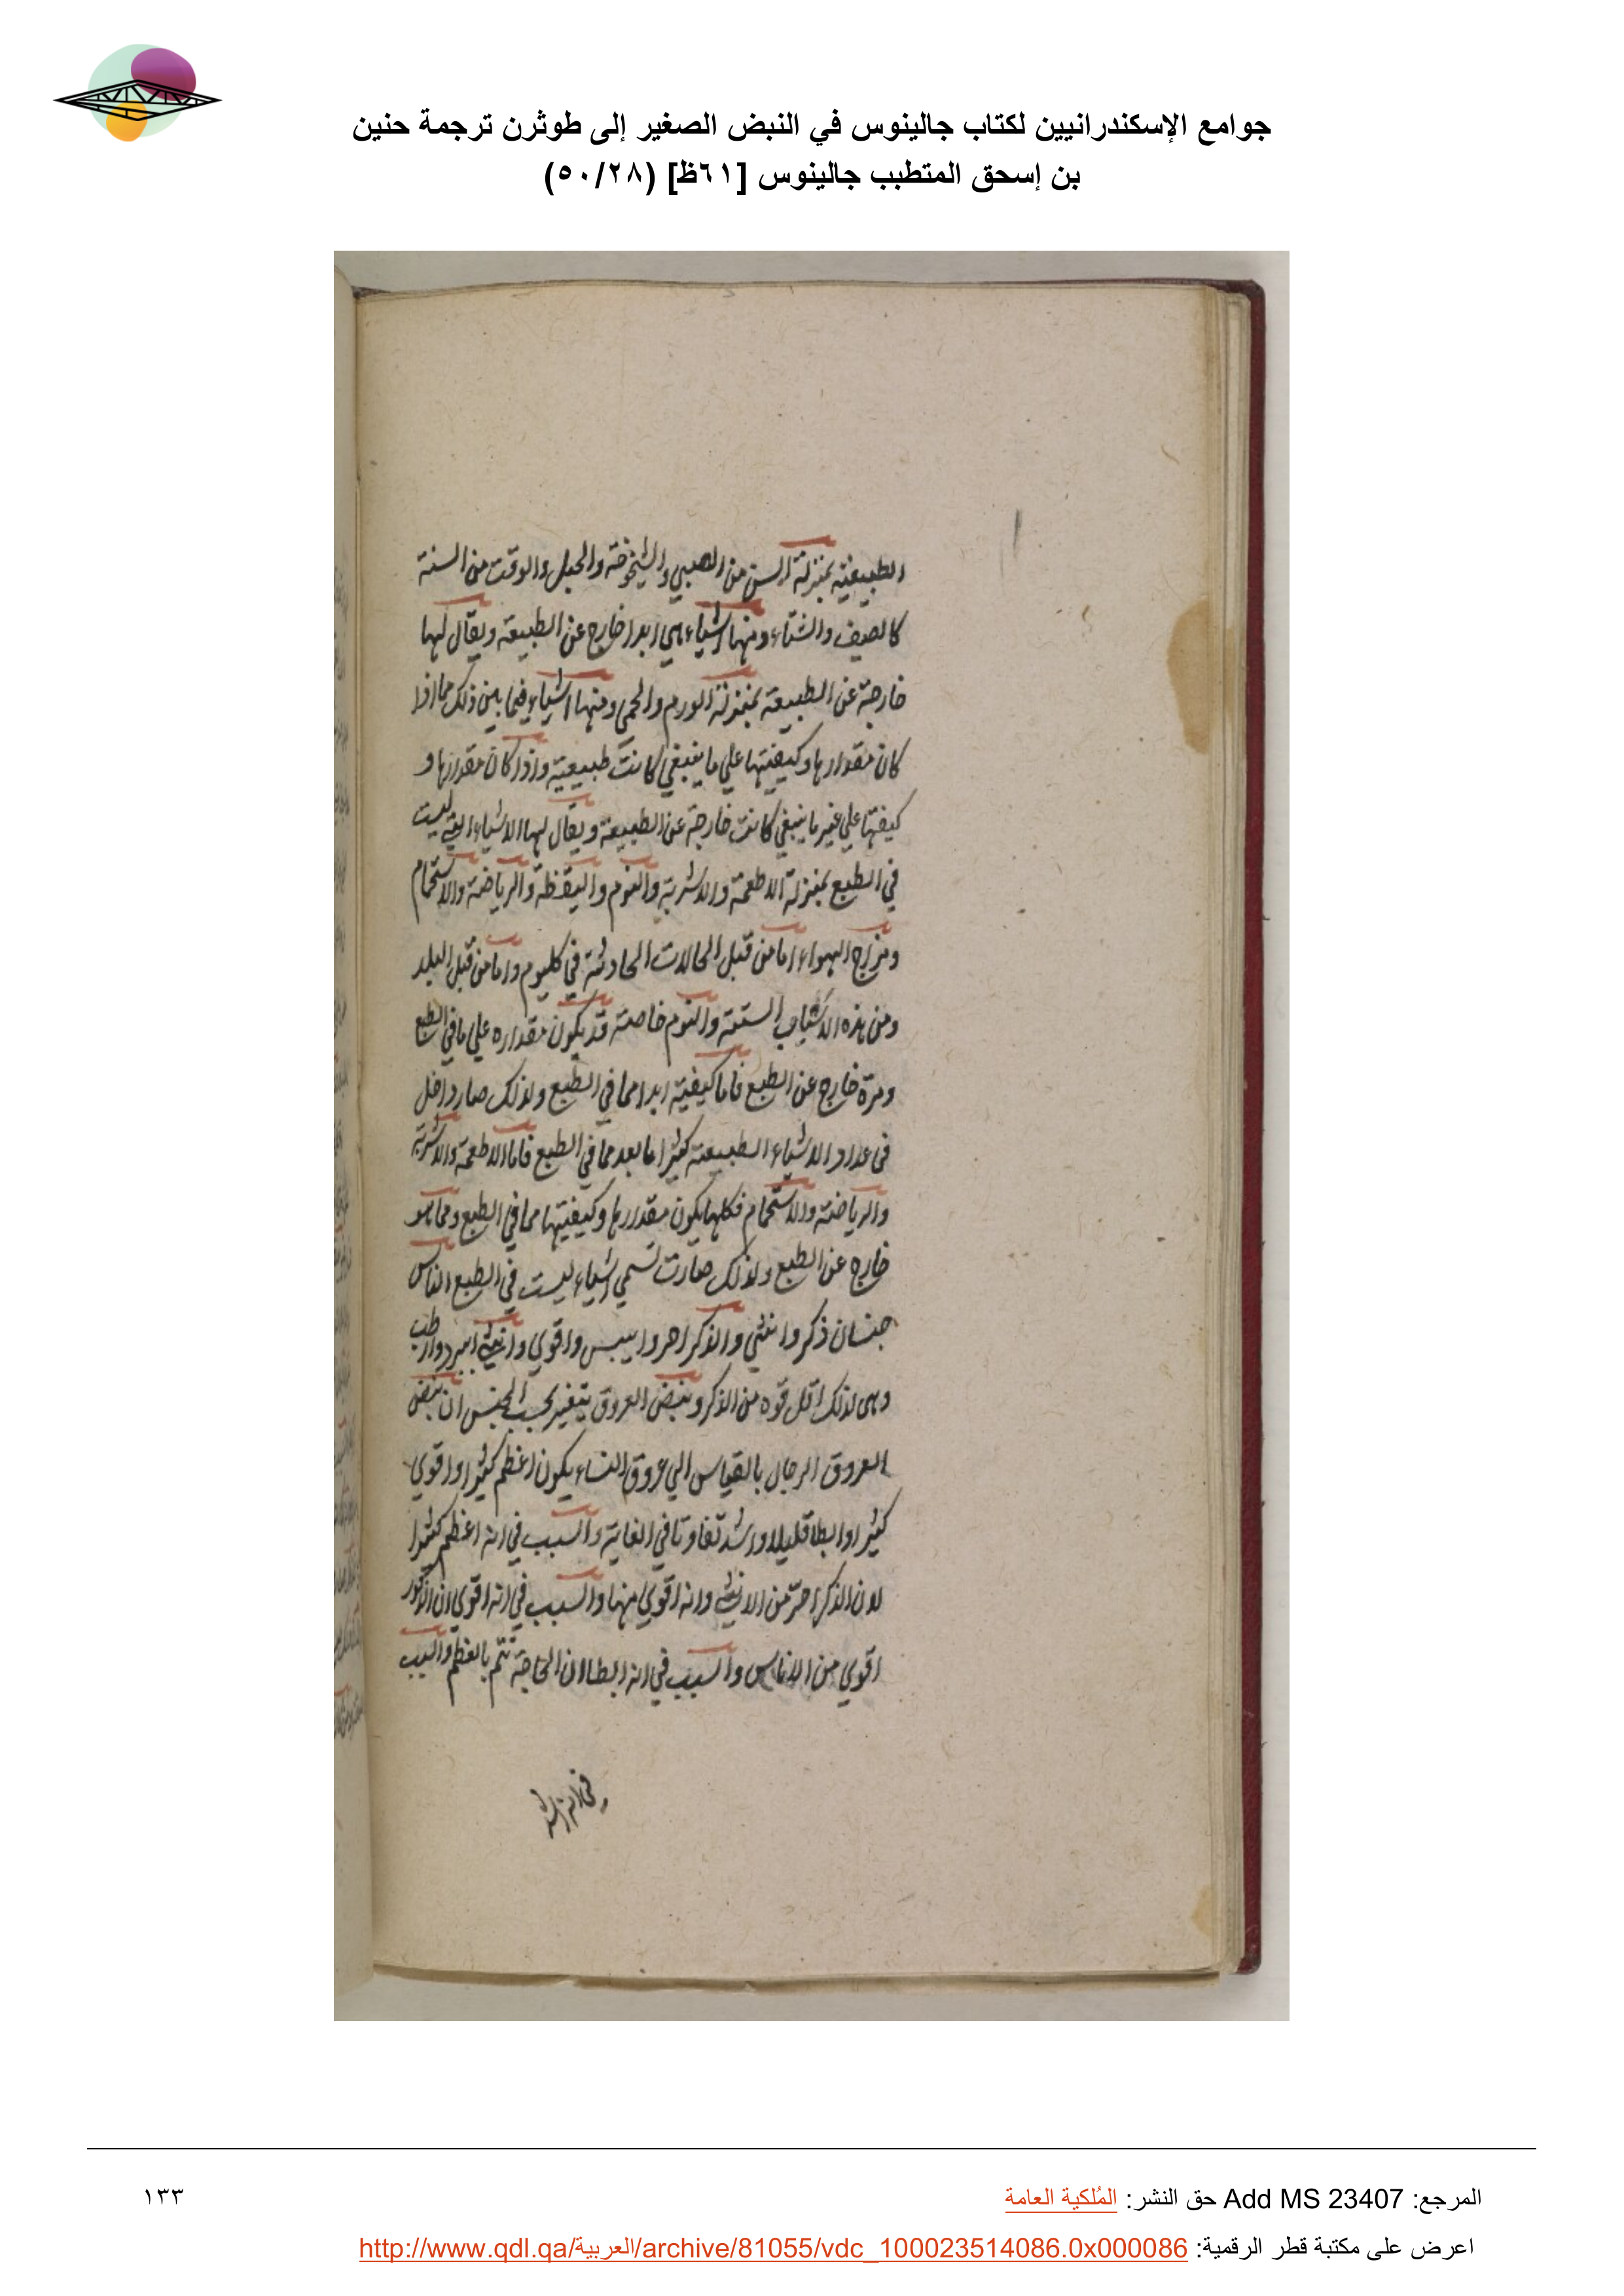 جوامع الإسكندرانيين لكتاب جالينوس في النبض الصغير إلى طوثرن ترجمة حنين
بن إسحق المتطبب جالينوس [٦١ظ] (٥٠/٢٨)
الطبيعية بمنزلة السن من الصبي والشيخوخة والحبل والوقت من السنة
كالصيف والشتاء ومنها اشياء هي ابدا خارج عن الطبيعة ويقال لها
خارجة عن الطبيعة بمنزلة الورم والحمي ومنها اشياء فيما بين ذلك مما اذا
كان مقدارها وكيفيتها علي ما ينبغي كانت طبيعية واذا كان مقدارها و
كيفتها علي غير ما ينبغي كانت خارجة عن الطبيعة ويقال لها الاشياء التي ليست
في الطبع بمنزلة الاطعمة والاشربة والنوم واليقظة والرياضة والاستحمام
ومزاج الهواء اما من قبل الحالات الحادثة في كليوم واما من قبل البلد
ومن هذه الاشياء الستة والنوم خاصة قد يكون مقداره علي ما في الطبع
ومرة خارج عن الطبع فاما كيفية ابدا مما في الطبع ولذلك صار داخل
في عداد الاشياء الطبيعة كثيرا ما بعد مما في الطبع فاما الاطعمة والاشربة
والرياضة والاستحمام فكلها يكون مقدارها وكيفيتها مما في الطبع ومما هو
خارج عن الطبع ولذلك صارت تسمي اشياء ليست في الطبع الناس
جنسان ذكر وانثي والذكر احر وايبس واقوي وانثي ابرد وارطب
وهي لذلك اقل قوه من الذكر ونبض العروق يتغير بحسب الجنس ان نبض
العروق الرجال بالقياس الي عروق النساء يكون اعظم كثيرا واقوي
كثيرا وابطا قليلا واشد تفاوتا في الغاية والسبب في انه اعظم كثيرا
لان الذكر احر من الانثي وانه اقوي منها والسبب في انه اقوي ان الذكور
اقوي من الاناس والسبب في انه ابطا ان الحاجة تتم بالعظم والسبب
في انه اشد
المرجع: Add MS 23407 حق النشر: المُلكية العامة
١٣٣
اعرض على مكتبة قطر الرقمية: http://www.qdl.qa/العربية/archive/81055/vdc_100023514086.0x000086